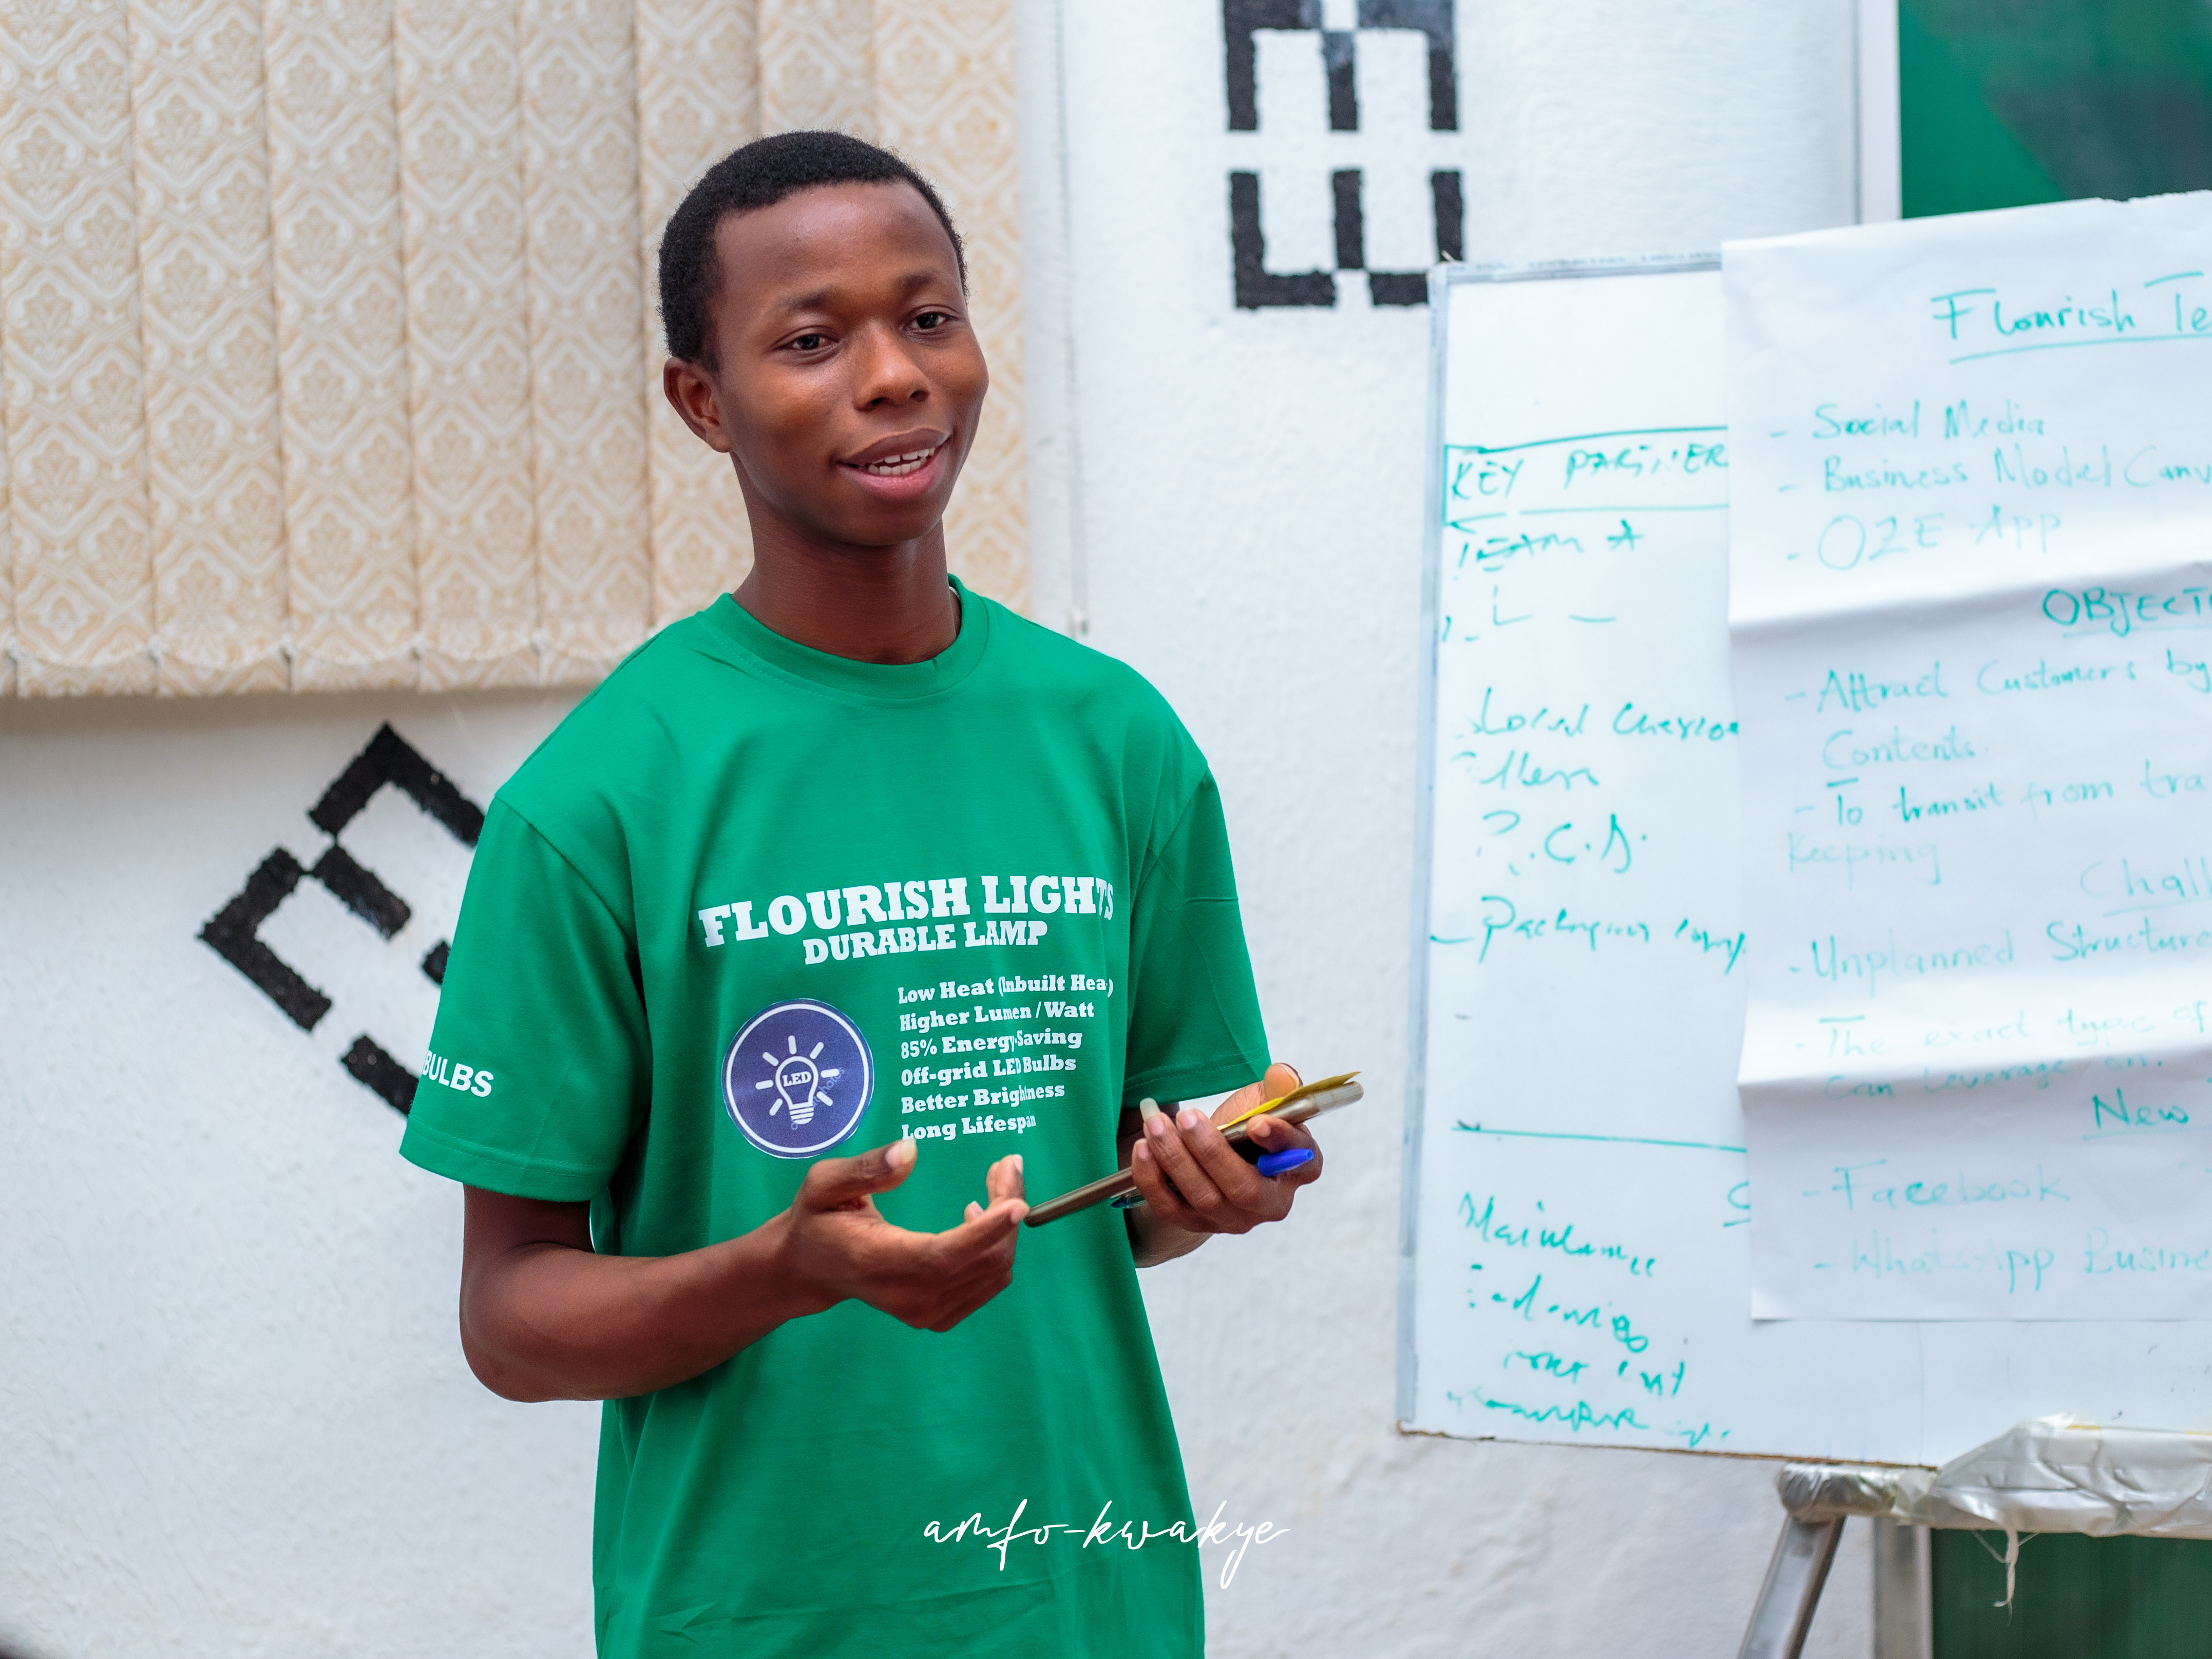 FLOURISH LIGHTS
DURABLE LAMP
Low Heat (Inbuilt Hea)
Higher Lumen / Watt
85% Energy-Saving
Off-grid LED Bulbs
Better Brightness
Long Lifespan
LED
BULBS
amfo-kwakye
KEY PARTNER
TEAM A
Local
P.C.A.
Flourish Te
- Social Media
- Business Model Canv
- OZE App
OBJECTI
- Attract Customers by
Contents.
- To transit from tra
Keeping
Chall
- Unplanned Structure
- The exact type of
can leverage on.
New
- Facebook
- WhatsApp Busine